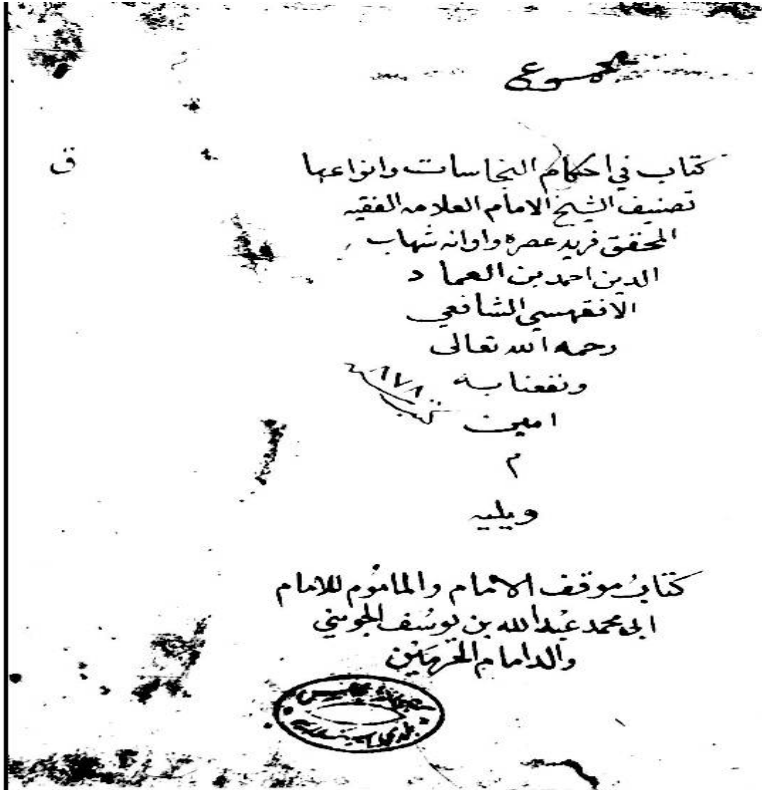 مجموع
ق
كتاب في احكام النجاسات وانواعها
تصنيف الشيخ الامام العلامه الفقيه
المحقق فريد عصره واوانه شهاب
الدين احمد بن العماد
الاقفهسي الشافعي
رحمه الله تعالى
ونفعنا به
امين
م
ويليه
كتاب موقف الامام والماموم للامام
ابي محمد عبد الله بن يوسف الجويني
والد امام الحرمين